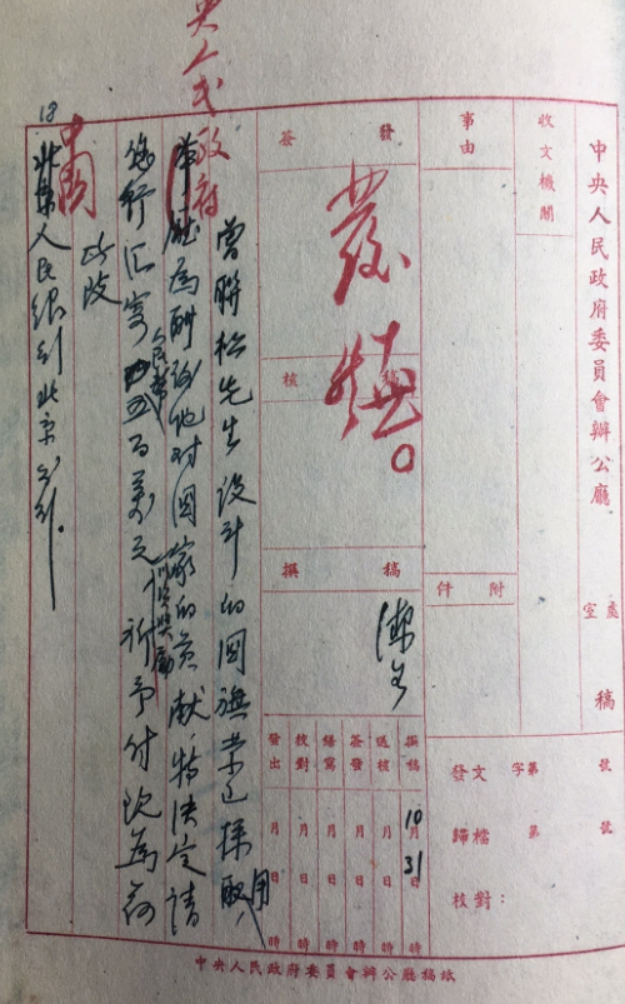 中央人民政府委員會辦公廳
室 處
稿
收文機關
事由
附件
發文 字第 號
歸檔 第 號
核對：
簽發
發
核稿
撰稿
撰稿 10月31日 時
送核 月 日 時
簽發 月 日 時
繕寫 月 日 時
校對 月 日 時
發出 月 日 時
央人民政府
曾聯松先生設計的國旗業已採用
為酬謝他对國家的貢献，特決定請
您行汇寄人民幣五百萬元 以資獎勵 祈予付汶為荷
此致
中國
人民銀行北京分行。
18
中央人民政府委員會辦公廳稿紙